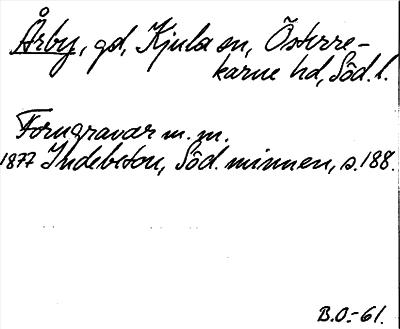 Årby, gd, Kjula sn, Österre-
karne hd, Söd. l.
Forngravar m. m.
1877 Indebetou, Söd. minnen, s. 188.
B.O.-61.